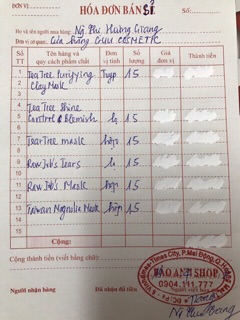 ĐƠN VỊ:
HÓA ĐƠN BÁN SỈ
Số:
Họ và tên người mua hàng: Ng Thi Hương Giang
Đơn vị cơ quan: Cửa hàng GUU COSMETIC
Số TT
Tên hàng và quy cách phẩm chất
Đơn vị tính
Số lượng
Giá đơn vị
Thành tiền
1 Tea Tree Purifying Tuýp 15
2 Clay Mask
3
4
5 Tea Tree Shine
6 Control & Blemish lọ 15
7 Tea Tree mask hộp 15
8
9 Row Job's Tears lọ 15
10
11 Row Job's Mask hộp 15
12
13 Taiwan Magnolia Mask hộp 15
14
15
Cộng:
Cộng thành tiền (viết bằng chữ):
Người nhận hàng
Đã nhận đủ tiền
BẢO ANH SHOP
0904.111.777
Times City, P.Mai Động, Q.